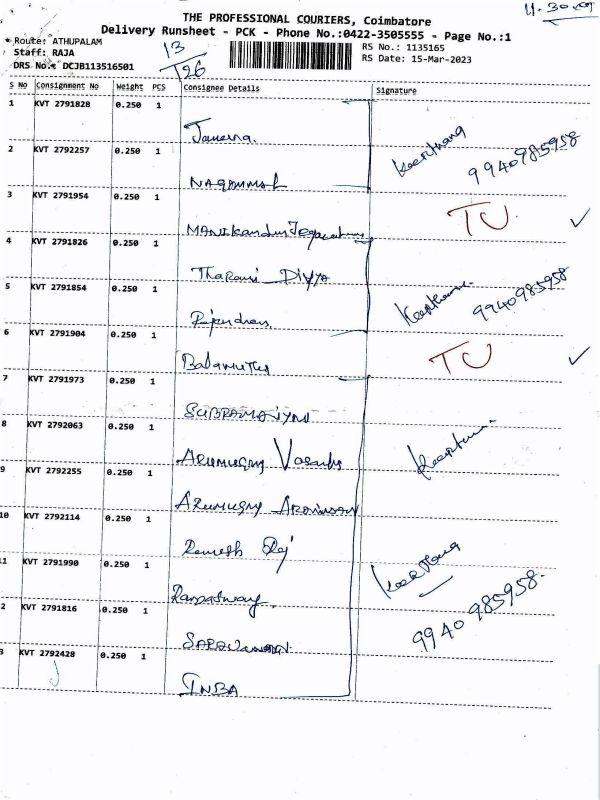 THE PROFESSIONAL COURIERS, Coimbatore
Delivery Runsheet - PCK - Phone No.:0422-3505555 - Page No.:1
Route: ATHUPALAM
Staff: RAJA
DRS No.: DCJB113516501
13
126
RS No.: 1135165
RS Date: 15-Mar-2023
S No Consignment No Weight PCS Consignee Details Signature
1 KVT 2791828 0.250 1
2 KVT 2792257 0.250 1 NAGAMMAL 9940985958
3 KVT 2791954 0.250 1 TU
4 KVT 2791826 0.250 1 Tharani Divya
5 KVT 2791854 0.250 1 Rajendran 9940985958
6 KVT 2791904 0.250 1 Balamuthu TU
7 KVT 2791973 0.250 1
8 KVT 2792063 0.250 1 Arumugam
9 KVT 2792255 0.250 1 Arumugam
10 KVT 2792114 0.250 1 Ramesh Raj
1 KVT 2791990 0.250 1
2 KVT 2791816 0.250 1 9940 985958
3 KVT 2792428 0.250 1 INBA